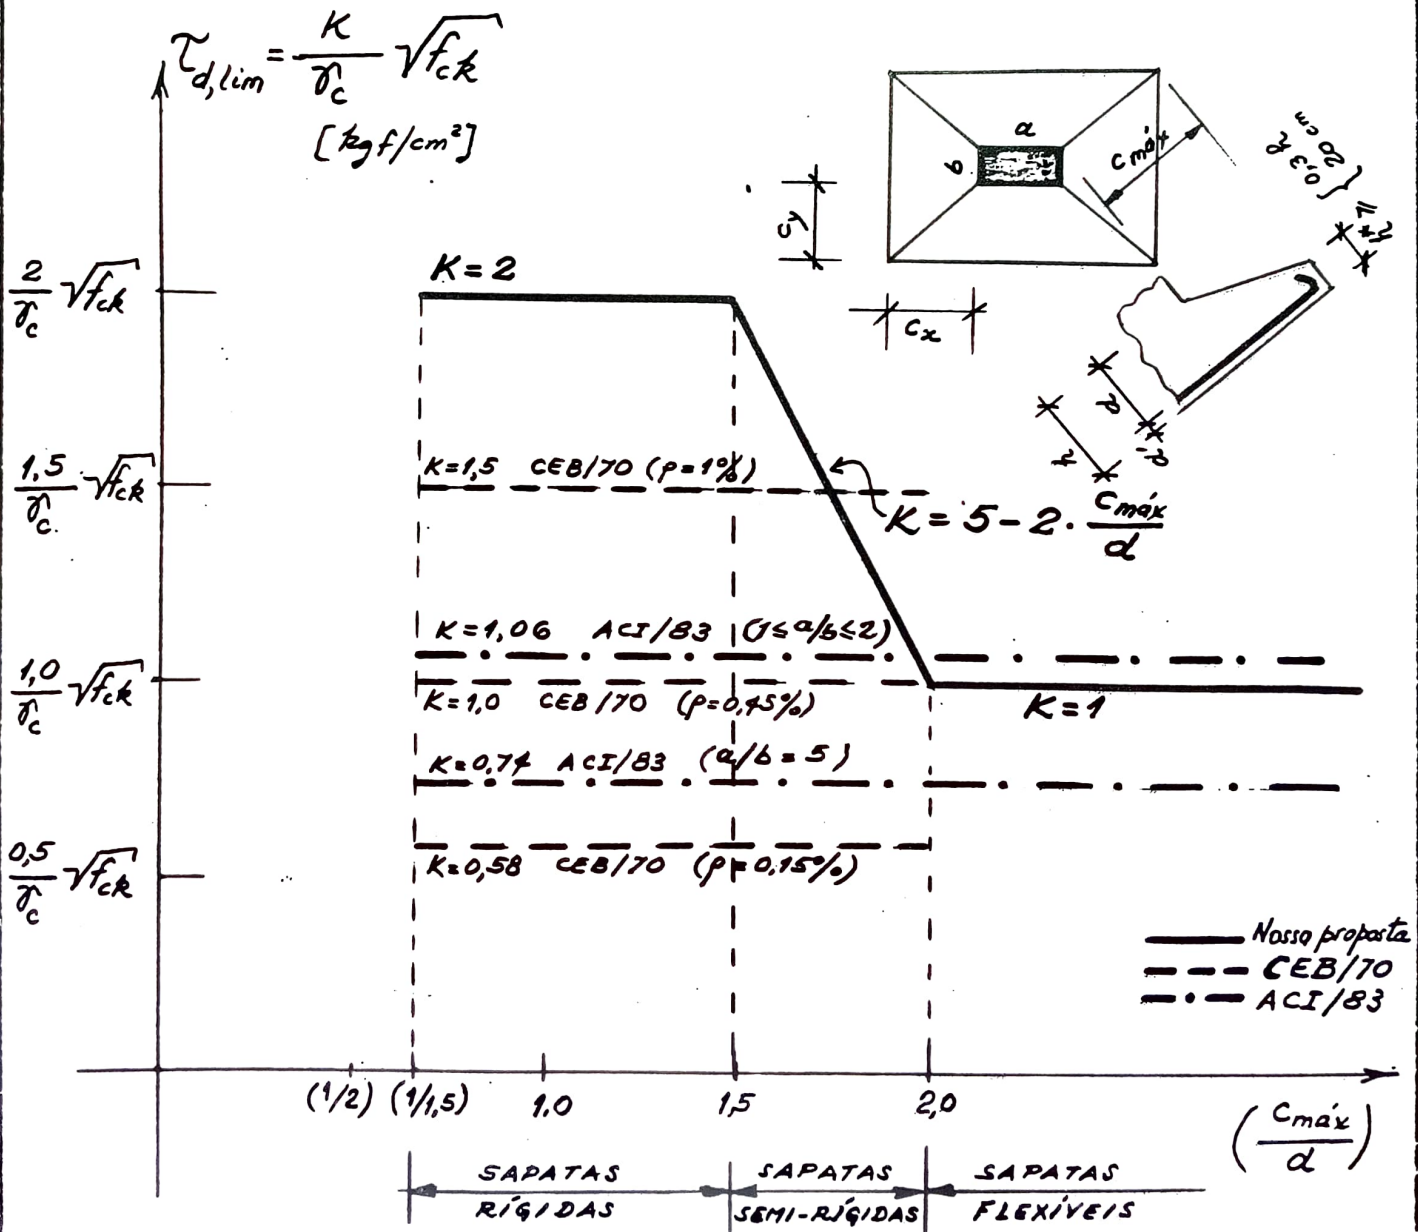 τd,lim = K/γc √fck
[kgf/cm²]
a
b
c máx
cy
cx
h* ≥ { 0,3 h
20 cm
d
d'
h
2/γc √fck
K=2
1,5/γc √fck
K=1,5 CEB/70 (ρ=1%)
K = 5-2. cmáx/d
K=1,06 ACI/83 (1≤a/b≤2)
1,0/γc √fck
K=1,0 CEB/70 (ρ=0,45%)
K=1
K=0,74 ACI/83 (a/b = 5)
0,5/γc √fck
K=0,58 CEB/70 (ρ=0,15%)
Nossa proposta
CEB/70
ACI/83
(1/2) (1/1,5) 1.0 1,5 2,0
(cmáx/d)
SAPATAS RÍGIDAS
SAPATAS SEMI-RÍGIDAS
SAPATAS FLEXÍVEIS